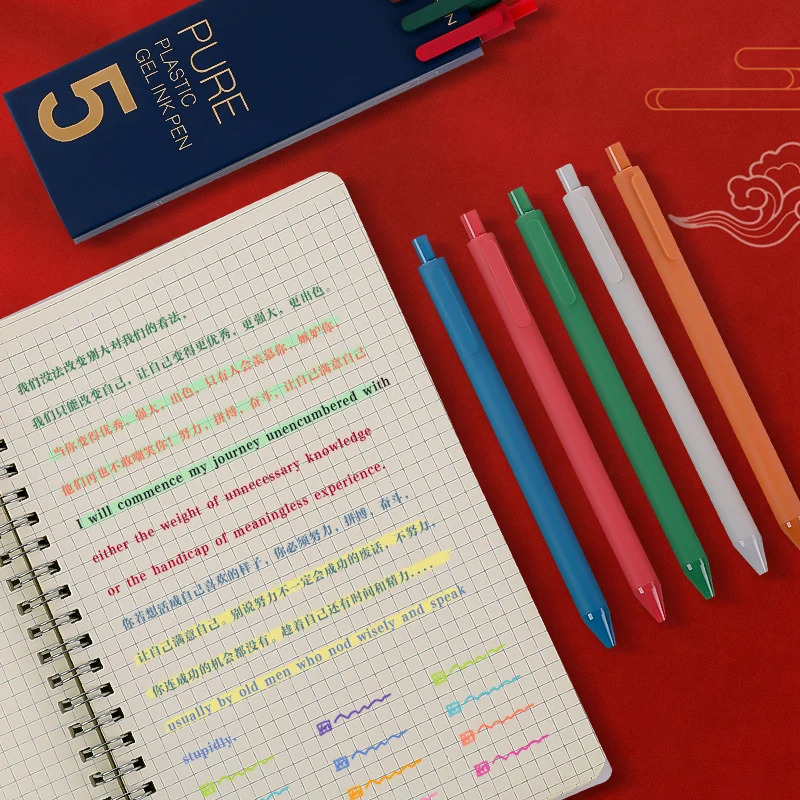 PURE
PLASTIC
GEL INK PEN
5
我们没法改变别大对我们的看法，
我们只能改变自己，让自己变得更优秀，更强大，更出色。
当你变得优秀，强大，出色，只有人会羡慕你，嫉妒你，
他们再也不敢嘲笑你！努力，拼搏，奋斗，让自己满意自己
I will commence my journey unencumbered with
either the weight of unnecessary knowledge
or the handicap of meaningless experience.
你若想活成自己喜欢的样子，你必须努力，拼搏，奋斗，
让自己满意自己。别说努力不一定会成功的废话，不努力，
你连成功的机会都没有。趁着自己还有时间和精力....
usually by old men who nod wisely and speak
stupidly.